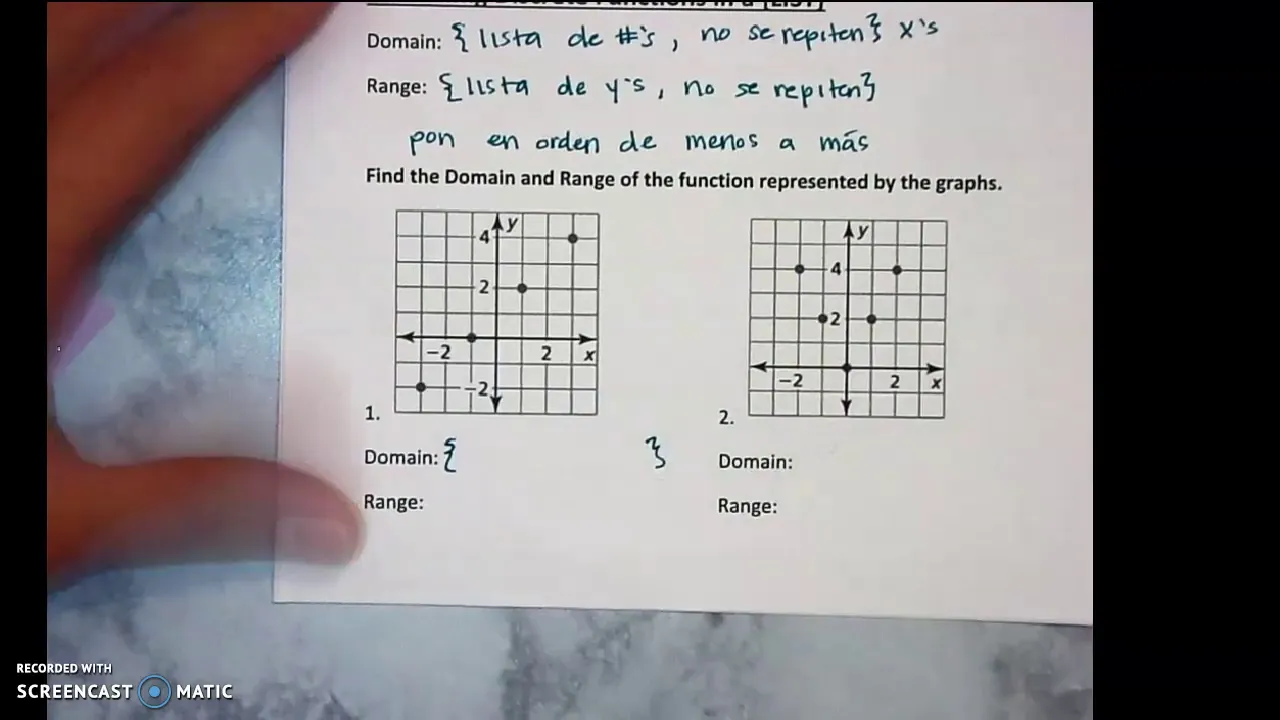 Domain: {lista de #'s, no se repiten} x's
Range: {lista de y's, no se repiten}
pon en orden de menos a más
Find the Domain and Range of the function represented by the graphs.
y
4
2
-2 2 x
-2
1.
y
4
2
-2 2 x
2.
Domain: { }
Range:
Domain:
Range:
RECORDED WITH
SCREENCAST MATIC